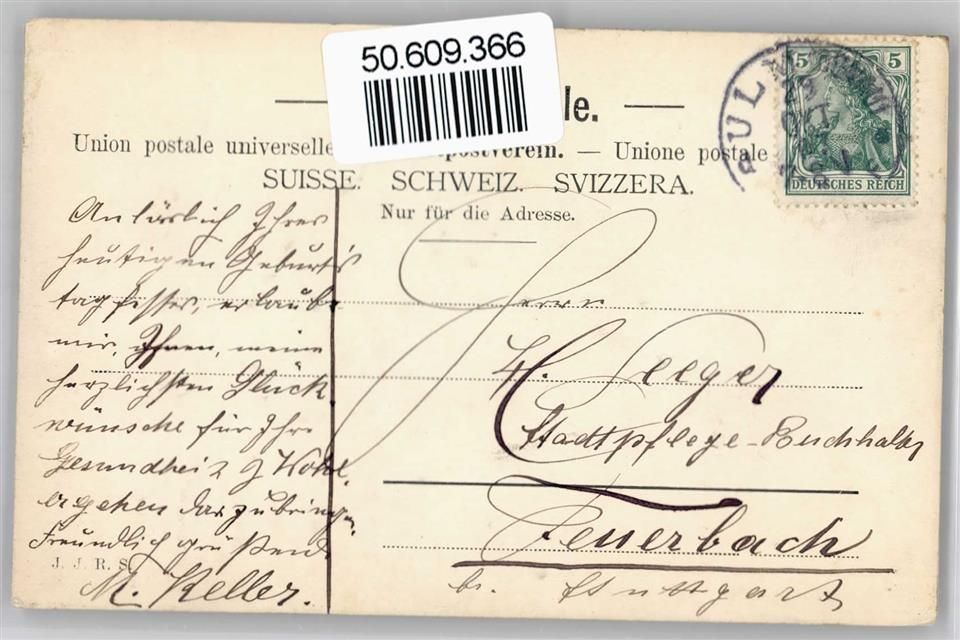 50.609.366
le.
Union postale universelle postverein. — Unione postale
SUISSE. SCHWEIZ. SVIZZERA.
Nur für die Adresse.
5 5
DEUTSCHES REICH
SUL
Anläslich Ihres
heutigen Geburts
tagfestes, erlaube
mir, Ihnen, meine
herzlichsten Glück
wünsche für Ihre
Gesundheit & Wohl
ergehen darzubringen.
Freundlich grüßend
J. J. R. S.
M. Keller.
Herrn
H. Seeger
Stadtpflege-Buchhalter
Feuerbach
b. Stuttgart